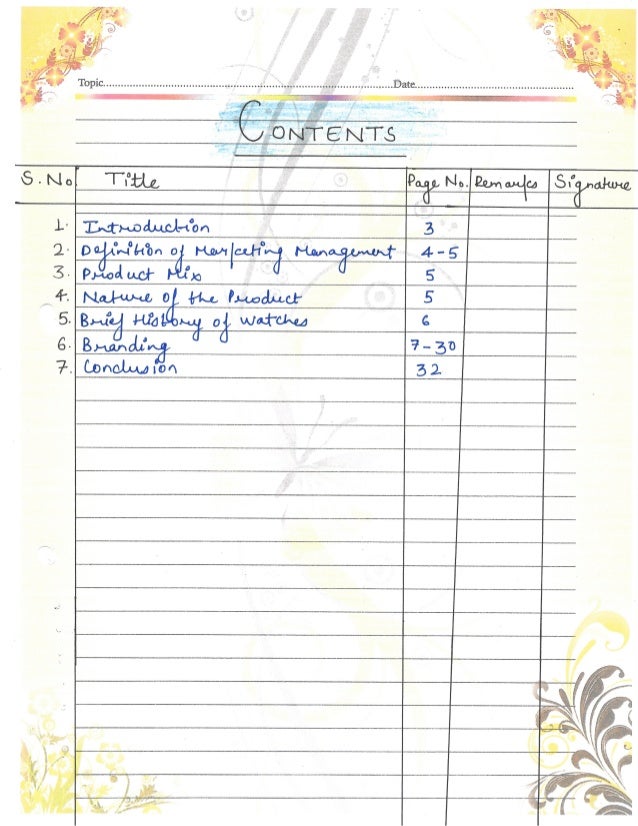 Topic.......... Date..........
CONTENTS
S.No Title Page No. Remarks Signature
1. Introduction 3
2. Definition of Marketing Management 4-5
3. Product Mix 5
4. Nature of the Product 5
5. Brief History of watches 6
6. Branding 7-30
7. Conclusion 32